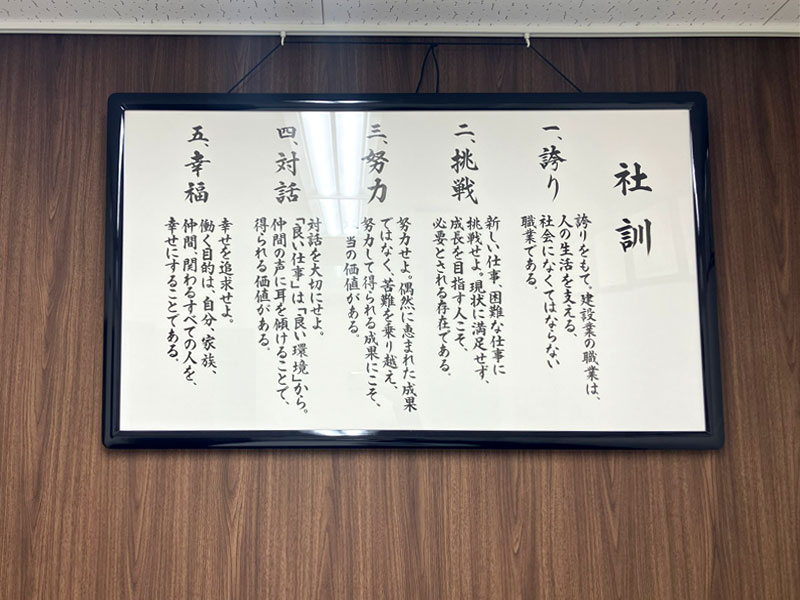 社訓
一、誇り
誇りをもて。建設業の職業は、
人の生活を支える、
社会になくてはならない
職業である。
二、挑戦
新しい仕事、困難な仕事に
挑戦せよ。現状に満足せず、
成長を目指す人こそ、
必要とされる存在である。
三、努力
努力せよ。偶然に恵まれた成果
ではなく、苦難を乗り越え、
努力して得られる成果にこそ、
当の価値がある。
四、対話
対話を大切にせよ。
「良い仕事」は「良い環境」から。
仲間の声に耳を傾けることで、
得られる価値がある。
五、幸福
幸せを追求せよ。
働く目的は、自分、家族、
仲間、関わるすべての人を、
幸せにすることである。